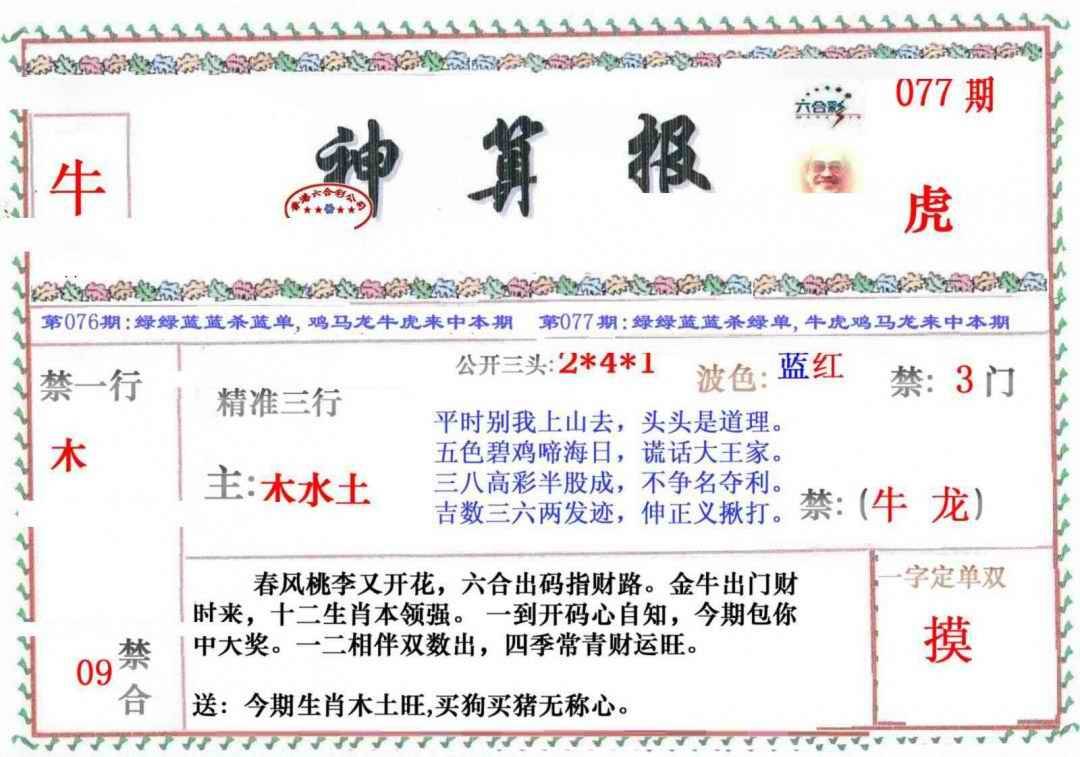 077 期
六合彩
牛
神算报
香港六合彩公司
虎
第076期:绿绿蓝蓝杀蓝单,鸡马龙牛虎来中本期 第077期:绿绿蓝蓝杀绿单,牛虎鸡马龙来中本期
禁一行
木
精准三行
主:木水土
公开三头:2*4*1
波色:蓝红
禁: 3门
平时别我上山去，头头是道理。
五色碧鸡啼海日，谎话大王家。
三八高彩半股成，不争名夺利。
吉数三六两发迹，伸正义揪打。
禁:(牛 龙)
09 禁合
春风桃李又开花，六合出码指财路。金牛出门财
时来，十二生肖本领强。 一到开码心自知，今期包你
中大奖。一二相伴双数出，四季常青财运旺。
送：今期生肖木土旺,买狗买猪无称心。
一字定单双
摸